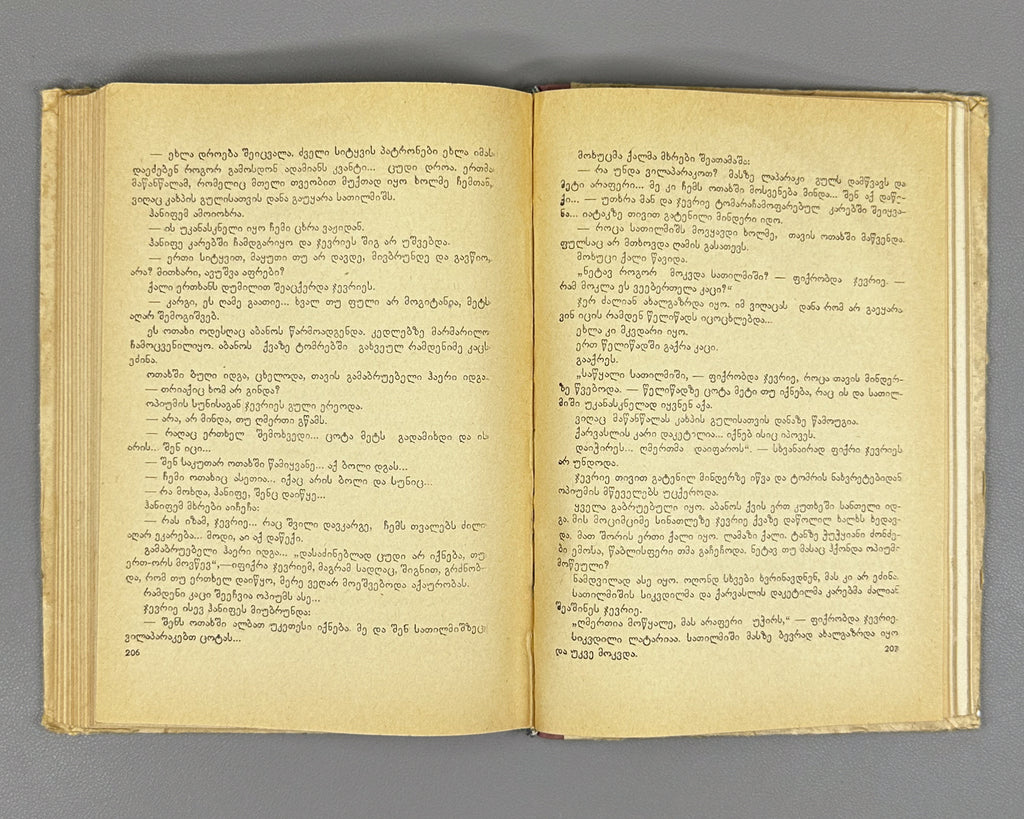 — ეხლა დროება შეიცვალა. ძველი სიტყვის პატრონები ეხლა იმას
დაეძებენ როგორ გამოსდონ ადამიანს კვანტი... ცუდი დროა. ერთმა
მაწანწალამ, რომელიც მთელი თვეობით მუქთად იყო ხოლმე ჩემთან,
ვიღაც კახპის გულისათვის დანა გაუყარა სათილმიშს.
ჰანიფემ ამოიოხრა.
— ის უკანასკნელი იყო ჩემი ცხრა ვაჟიდან.
ჰანიფე კარებში ჩამდგარიყო და ჯევრიეს შიგ არ უშვებდა.
— ერთი სიტყვით, მაყუთი თუ არ დავდე, მივბრუნდე და გავწიო,
არა? მითხარი, ავუშვა აფრები?
ქალი ერთხანს დუმილით შეაცქერდა ჯევრიეს.
— კარგი, ეს ღამე გაათიე... ხვალ თუ ფული არ მოგიტანია, მეტს
აღარ შემოგიშვებ.
ეს ოთახი ოდესღაც აბანოს წარმოადგენდა. კედლებზე მარმარილო
ჩამოცვენილიყო. აბანოს ქვაზე ტომრებში გახვეულ რამდენიმე კაცს
ეძინა.
ოთახში ბუღი იდგა, ცხელოდა, თავის გამაბრუებელი ჰაერი იდგა.
— თრიაქიც ხომ არ გინდა?
ოპიუმის სუნისაგან ჯევრიეს გული ერეოდა.
— არა, არ მინდა, თუ ღმერთი გწამს.
— რაღაც ერთხელ შემოხვედი... ცოტა მეტს გადამიხდი და ის
არის... შენ იცი...
— შენ საკუთარ ოთახში წამიყვანე... აქ ბოლი დგას...
— ჩემი ოთახიც ასეთია... იქაც არის ბოლი და სუნიც...
— რა მოხდა, ჰანიფე, შენც დაიწყე...
ჰანიფემ მხრები აიჩეჩა:
— რას იზამ, ჯევრიე... რაც შვილი დავკარგე, ჩემს თვალებს ძილი
აღარ ეკარება... მოდი, აი აქ დაწექი.
გამაბრუებელი ჰაერი იდგა... „დასაძინებლად ცუდი არ იქნება, თუ
ერთ-ორს მოვწევ“,—იფიქრა ჯევრიემ, მაგრამ სადღაც, შიგნით, გრძნობ-
და, რომ თუ ერთხელ დაიწყო, მერე ვეღარ მოეშვებოდა აქაურობას.
რამდენი კაცი შეეჩვია ოპიუმს ასე...
ჯევრიე ისევ ჰანიფეს მიუბრუნდა:
— შენს ოთახში ალბათ უკეთესი იქნება. მე და შენ სათილმიშზეც
ვილაპარაკებთ ცოტას...
206
მოხუცმა ქალმა მხრები შეათამაშა:
— რა უნდა ვილაპარაკოთ? მასზე ლაპარაკი გულს დამწვავს და
მეტი არაფერი... მე კი ჩემს ოთახში მოსვენება მინდა... შენ აქ დაწე-
ქი... — უთხრა მან და ჯევრიე ტომარაჩამოფარებულ კარებში შეიყვა-
ნა... იატაკზე თივით გატენილი მინდერი იდო.
— როცა სათილმიშს მოვყავდი ხოლმე, თავის ოთახში მაწვენდა.
ფულსაც არ მთხოვდა ღამის გასათევს.
მოხუცი ქალი წავიდა.
„ნეტავ როგორ მოკვდა სათილმიში? — ფიქრობდა ჯევრიე. —
რამ მოკლა ეს ვეებერთელა კაცი?“
ჯერ ძალიან ახალგაზრდა იყო. იმ ვიღაცას დანა რომ არ გაეყარა
ვინ იცის რამდენ წელიწადს იცოცხლებდა...
ეხლა კი მკვდარი იყო.
ერთ წელიწადში გაქრა კაცი.
გააქრეს.
„საწყალი სათილმიში, — ფიქრობდა ჯევრიე, როცა თავის მინდერ-
ზე წვებოდა. — წელიწადზე ცოტა მეტი თუ იქნება, რაც ის და სათილ-
მიში უკანასკნელად იყვნენ აქა.
ვიღაც მაწანწალას კახპის გულისათვის დანაზე წამოუგია.
ქარვასლის კარი დაკეტილია... იქნებ ისიც იპოვეს.
დაიჭირეს... ღმერთმა დაიფაროს“. — სხვანაირად ფიქრი ჯევრიეს
არ უნდოდა.
ჯევრიე თივით გატენილ მინდერზე იწვა და ტომრის ნახვრეტებიდან
ოპიუმის მწეველებს უცქეროდა.
ყველა გაბრუებული იყო. აბანოს ქვის ერთ კუთხეში სანთელი იდ-
გა. მის მოციმციმე სინათლეზე ჯევრიე ქვაზე დაწოლილ ხალხს ხედავ-
და. მათ შორის ერთი ქალი იყო. ლამაზი ქალი. ტანზე ჭუჭყიანი ძონძე-
ბი ემოსა, წაბლისფერი თმა გაჩეჩოდა. ნეტავ თუ მასაც ჰქონდა ოპიუმი
მოწეული?
ნამდვილად ასე იყო. ოღონდ სხვები ხვრინავდნენ, მას კი არ ეძინა.
სათილმიშის სიკვდილმა და ქარვასლის დაკეტილმა კარებმა ძალიან
შეაშინეს ჯევრიე.
„ღმერთია მოწყალე, მას არაფერი უჭირს,“ — ფიქრობდა ჯევრიე.
სიკვდილი ლატარიაა. სათილმიში მასზე ბევრად ახალგაზრდა იყო
და უკვე მოკვდა.
207